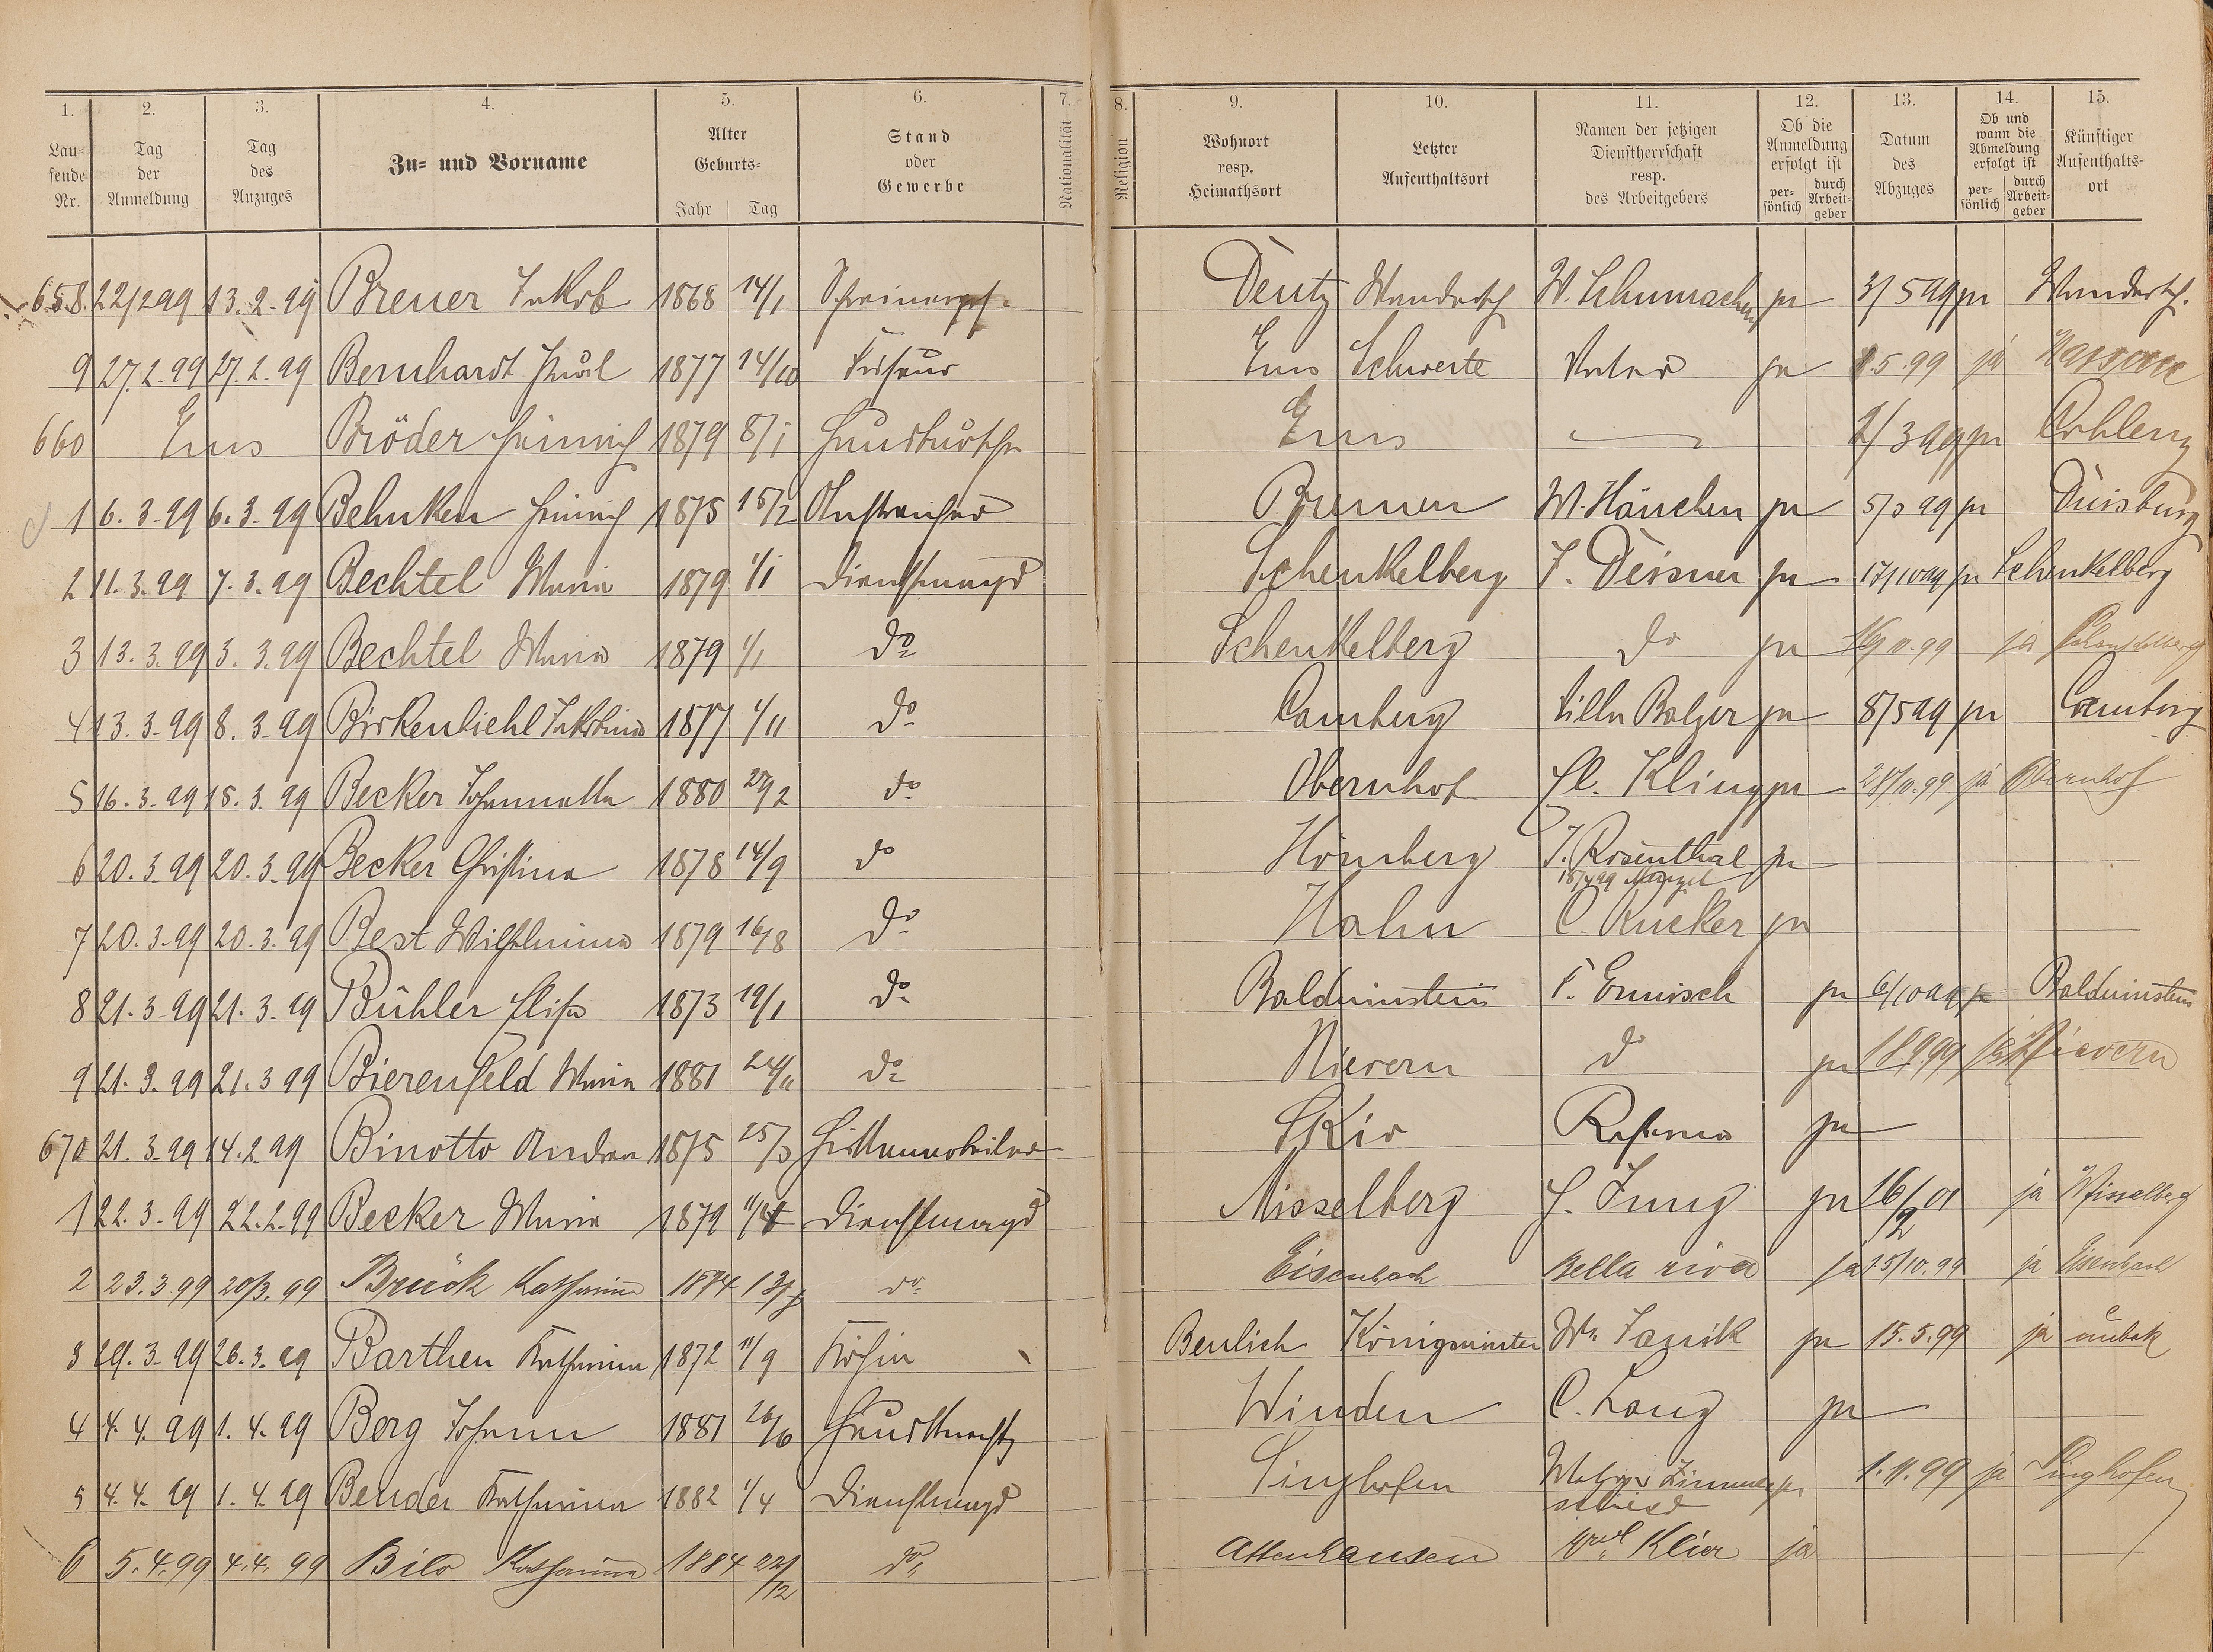 1. 2. 3. 4. 5. 6. 7. 8. 9. 10. 11. 12. 13. 14. 15.
Laufende Nr. Tag der Anmeldung Tag des Anzuges Zu- und Vorname Alter Geburts- Jahr Tag Stand oder Gewerbe Nationalität Religion Wohnort resp. Heimathsort Letzter Aufenthaltsort Namen der jetzigen Dienstherrschaft resp. des Arbeitgebers Ob die Anmeldung erfolgt ist persönlich durch Arbeitgeber Datum des Abzuges Ob und wann die Abmeldung erfolgt ist persönlich durch Arbeitgeber Künftiger Aufenthaltsort
658. 22/2 99 13.2.99 Breuer Jakob 1868 14/1 Schreinerges. Deutz Wandersch W. Schumacher ja 3/5 99 ja Wandersch.
9 27.2.99 27.2.99 Bernhardt Karl 1877 14/10 Friseur Ems Schwerte Vater ja 1.5.99 ja Nassau
660 Ems Bröder Heinrich 1879 8/1 Hausbursche Ems — 2/3 99 ja Coblenz
1 6.3.99 6.3.99 Behnken Heinrich 1875 15/2 Anstreicher Bremen W. Hänchen ja 5/3 99 ja Duisburg
2 11.3.99 7.3.99 Bechtel Maria 1879 1/1 Dienstmagd Schenkelberg J. Deisner ja 17/10 99 ja Schenkelberg
3 13.3.99 3.3.99 Bechtel Maria 1879 1/1 do Schenkelberg do ja 16/11.99 ja Schenkelberg
4 13.3.99 8.3.99 Birkenbiehl Jakobina 1877 1/11 do Camberg Villa Balzer ja 8/5 99 ja Camberg
5 16.3.99 18.3.99 Becker Johannette 1880 27/2 do Obernhof Fl. Kling ja 28/11.99 ja Obernhof
6 20.3.99 20.3.99 Becker Christina 1878 14/9 do Hömberg J. Rosenthal ja
18/4 99
7 20.3.99 20.3.99 Best Wilhelmina 1879 16/8 do Hahn C. Rücker ja
8 21.3.99 21.3.99 Bühler Elise 1873 19/1 do Balduinstein F. Ermisch ja 6/10 99 ja Balduinstein
9 21.3.99 21.3.99 Bierenfeld Maria 1881 24/11 do Nievern do ja 18.9.99 ja Nievern
670 21.3.99 14.2.99 Binotto Andrea 1875 25/3 Hüttenarbeiter ja
1 22.3.99 22.2.99 Becker Maria 1879 Dienstmagd Misselberg H. Jung ja 16/2 01 ja Misselberg
2 23.3.99 20/3.99 Brück Katharina 1874 do Eisenbach Bella riva ja 15/10.99 ja Eisenbach
3 29.3.99 26.3.99 Barthen Katharina 1872 11/9 Köchin Beulich Königswinter ja 15.5.99 ja unbek
4 4.4.99 1.4.99 Berg Johann 1881 26/6 Hausknecht Winden C. Lang ja
5 4.4.99 1.4.99 Bender Katharina 1882 1/4 Dienstmagd Singhofen Metzger Zimmerschied ja 1.11.99 ja Singhofen
6 5.4.99 4.4.99 Bilo Katharina 1884 22/12 do Attenhausen Klier ja